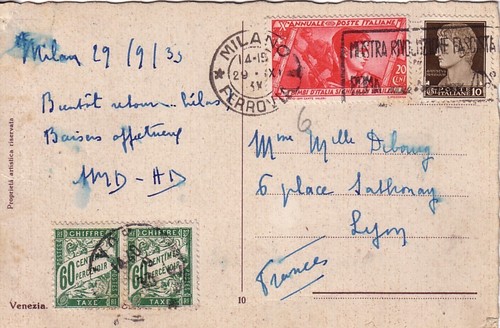 Milan 29/9/33
Bientôt retour... hélas
Baisers
AMD - AD
Proprietà artistica riservata
Venezia.
10
MILANO
14-15
29 · IX
FERROVIA
ANNUALE POSTE ITALIANE
20
CENT
MOSTRA RIVOLUZIONE FASCISTA
ROMA
POSTE ITALIANE
10
6
Mme Mille Debourg
6 place Sathonay
Lyon
France
CHIFFRE
60
CENTIMES
À PERCEVOIR
TAXE
CHIFFRE
60
CENTIMES
À PERCEVOIR
TAXE